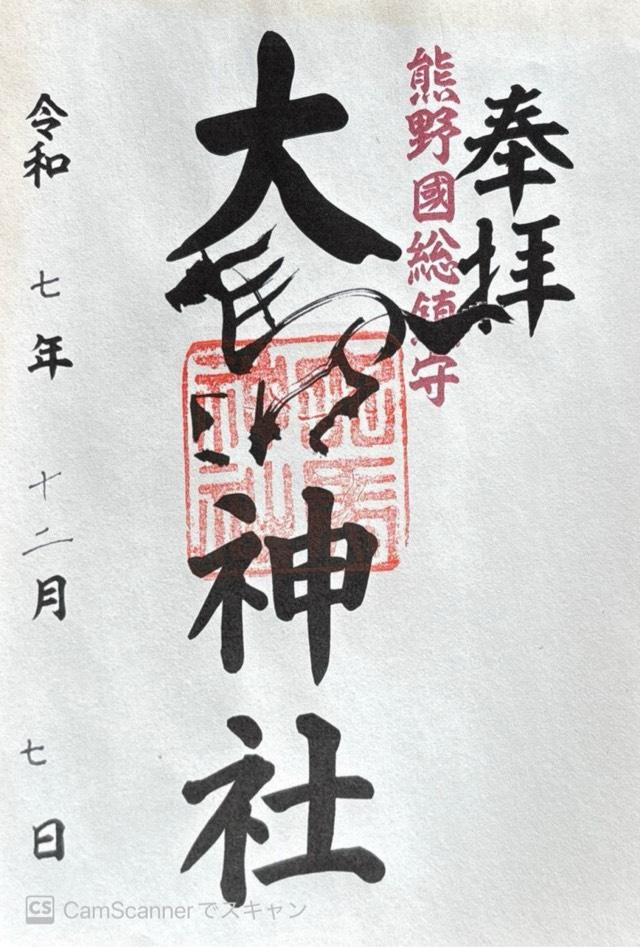 奉拝
熊野國総鎮守
大馬神社
令和 七年 十二月 七日
CS CamScannerでスキャン